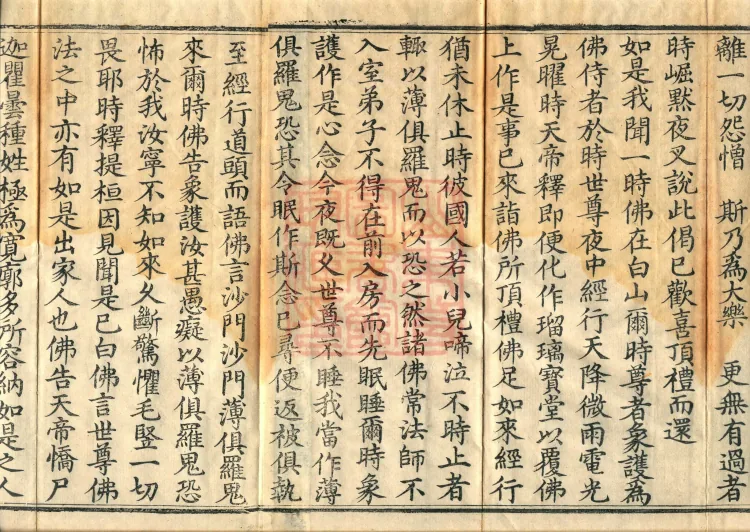 離一切怨憎　斯乃為大樂　更無有過者
時崛默夜叉說此偈已歡喜頂禮而還
如是我聞一時佛在白山爾時尊者象護為
佛侍者於時世尊夜中經行天降微雨電光
晃曜時天帝釋即便化作瑠璃寶堂以覆佛
上作是事已來詣佛所頂禮佛足如來經行
猶未休止時彼國人若小兒啼泣不時止者
輙以薄俱羅鬼而以恐之然諸佛常法師不
入室弟子不得在前入房而先眠睡爾時象
護作是心念今夜既久世尊不睡我當作薄
俱羅鬼恐其令眠作斯念已尋便返被俱執
至經行道頭而語佛言沙門沙門薄俱羅鬼
來爾時佛告象護汝甚愚癡以薄俱羅鬼恐
怖於我汝寧不知如來久斷驚懼毛竪一切
畏耶時釋提桓因見聞是已白佛言世尊佛
法之中亦有如是出家人也佛告天帝憍尸
迦瞿曇種姓極為寬廓多所容納如是之人